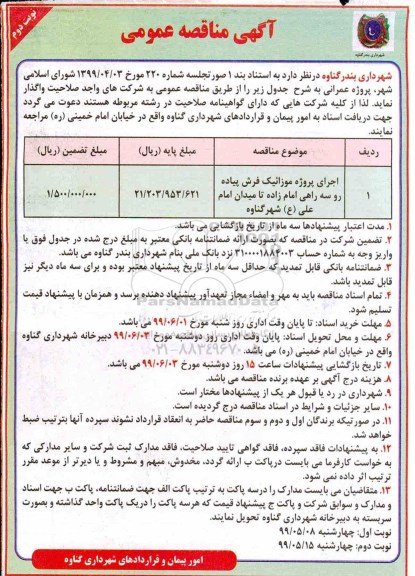 نوبت دوم
آگهی مناقصه عمومی
شهرداری بندر گناوه
شهرداری بندر گناوه درنظر دارد به استناد بند ۱ صورتجلسه شماره ۲۲۰ مورخ ۱۳۹۹/۰۴/۰۳ شورای اسلامی
شهر، پروژه عمرانی به شرح جدول زیر را از طریق مناقصه عمومی به شرکت های واجد صلاحیت واگذار
نماید. لذا از کلیه شرکت هایی که دارای گواهینامه صلاحیت در رشته مربوطه هستند دعوت می گردد
جهت دریافت اسناد به امور پیمان و قراردادهای شهرداری گناوه واقع در خیابان امام خمینی (ره) مراجعه
نمایند.
ردیف موضوع مناقصه مبلغ پایه (ریال) مبلغ تضمین (ریال)
۱ اجرای پروژه موزائیک فرش پیاده رو سه راهی امام زاده تا میدان امام علی (ع) شهر گناوه ۲۱/۲۰۳/۹۵۳/۶۲۱ ۱/۵۰۰/۰۰۰/۰۰۰
۱. مدت اعتبار پیشنهادها سه ماه از تاریخ بازگشایی می باشد.
۲. تضمین شرکت در مناقصه که بصورت ارائه ضمانتنامه بانکی معتبر به مبلغ درج شده در جدول فوق یا
واریز وجه به شماره حساب نزد بانک ملی بنام شهرداری بندر گناوه می باشد.
۳. ضمانتنامه بانکی قابل تمدید که حداقل سه ماه از تاریخ پیشنهاد معتبر بوده و برای سه ماه دیگر نیز
قابل تمدید باشد.
۴. تمام اسناد مناقصه باید به مهر و امضاء مجاز تعهدآور پیشنهاد دهنده برسد و همزمان با پیشنهاد قیمت
تسلیم شود.
۵. مهلت خرید اسناد: تا پایان وقت اداری روز شنبه مورخ ۹۹/۰۶/۰۱ می باشد.
۶. مهلت و محل تحویل اسناد: پایان وقت اداری روز دوشنبه مورخ ۹۹/۰۶/۰۳ دبیرخانه شهرداری گناوه
واقع در خیابان امام خمینی (ره) می باشد.
۷. تاریخ بازگشایی پیشنهادات ساعت ۱۵ روز دوشنبه مورخ ۹۹/۰۶/۰۳ می باشد.
۸. هزینه درج آگهی بر عهده برنده مناقصه می باشد.
۹. شهرداری در رد یا قبول هر یک از پیشنهادها مختار است.
۱۰. سایر جزئیات و شرایط در اسناد مناقصه درج گردیده است.
۱۱. در صورتیکه برندگان اول و دوم و سوم مناقصه حاضر به انعقاد قرارداد نشوند سپرده آنها بترتیب ضبط
خواهد شد.
۱۲. به پیشنهادات فاقد سپرده، فاقد گواهی تایید صلاحیت، فاقد مدارک ثبت شرکت و سایر مدارکی که
به خواست کارفرما می بایست درپاکت ب ارائه گردد، مخدوش، مبهم و مشروط و یا دیرتر از موعد مقرر
ترتیب اثر داده نمی شود.
۱۳. متقاضیان می بایست مدارک را درسه پاکت به ترتیب پاکت الف جهت ضمانتنامه، پاکت ب جهت اسناد
و مدارک و سوابق شرکت و پاکت ج پیشنهاد قیمت که هرسه پاکت را دریک پاکت واحد گذاشته و بصورت
سربسته به دبیرخانه شهرداری گناوه تحویل نمایند.
نوبت اول: چهارشنبه ۹۹/۰۵/۰۸
نوبت دوم: چهارشنبه ۹۹/۰۵/۱۵
امور پیمان و قراردادهای شهرداری گناوه